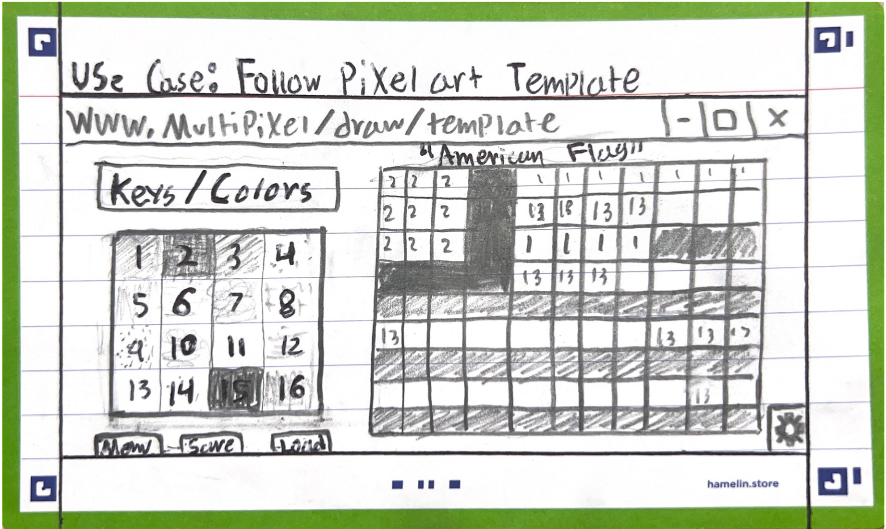 USe Case: Follow PiXel art Template
WWW.MultiPiXel/draw/template - □ X
"American Flag"
Keys/Colors
1 2 3 4
5 6 7 8
9 10 11 12
13 14 15 16
Menu Save Load
2 2 2 1 1 1 1 1 1 1
2 2 2 13 18 13 13
2 2 2 1 1 1 1
13 13 13
13 13 13 13
13
hamelin.store